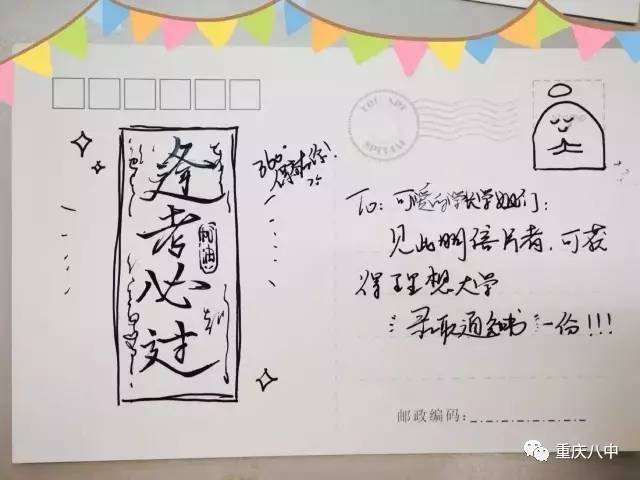 逢考必过
加油
360°
YOU ARE
SPECIAL
To：可爱的学长学姐们：
见此明信片者，可获
得理想大学
录取通知书一份!!!
邮政编码：
重庆八中